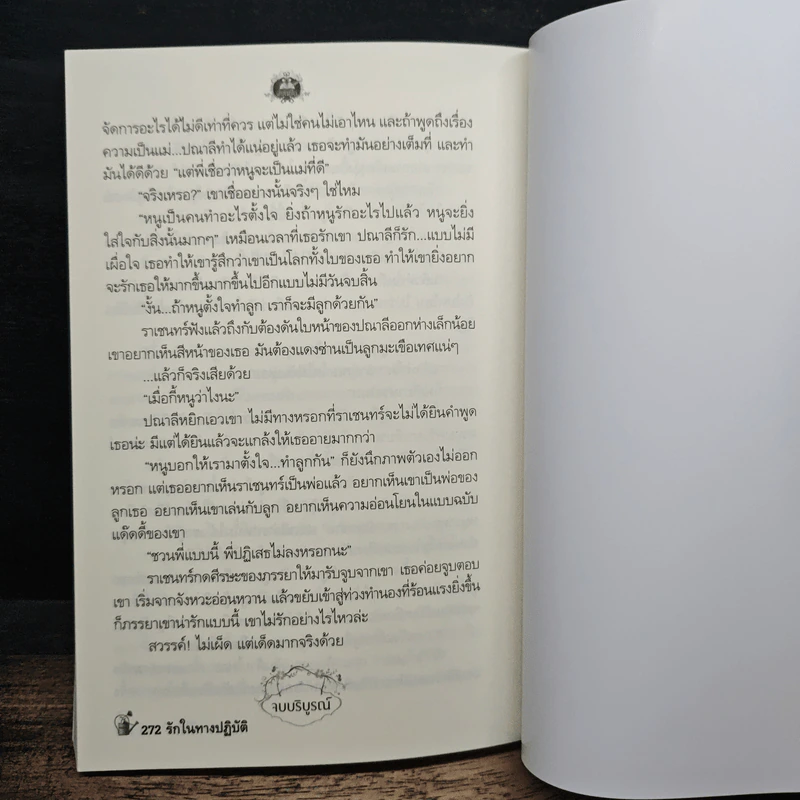 จัดการอะไรได้ไม่ดีเท่าที่ควร แต่ไม่ใช่คนไม่เอาไหน และถ้าพูดถึงเรื่อง
ความเป็นแม่...ปณาลีทำได้แน่อยู่แล้ว เธอจะทำมันอย่างเต็มที่ และทำ
มันได้ดีด้วย “แต่พี่เชื่อว่าหนูจะเป็นแม่ที่ดี”
“จริงเหรอ?” เขาเชื่ออย่างนั้นจริงๆ ใช่ไหม
“หนูเป็นคนทำอะไรตั้งใจ ยิ่งถ้าหนูรักอะไรไปแล้ว หนูจะยิ่ง
ใส่ใจกับสิ่งนั้นมากๆ” เหมือนเวลาที่เธอรักเขา ปณาลีก็รัก...แบบไม่มี
เผื่อใจ เธอทำให้เขารู้สึกว่าเขาเป็นโลกทั้งใบของเธอ ทำให้เขายิ่งอยาก
จะรักเธอให้มากขึ้นมากขึ้นไปอีกแบบไม่มีวันจบสิ้น
“งั้น...ถ้าหนูตั้งใจทำลูก เราก็จะมีลูกด้วยกัน”
ราเชนทร์ฟังแล้วถึงกับต้องดันใบหน้าของปณาลีออกห่างเล็กน้อย
เขาอยากเห็นสีหน้าของเธอ มันต้องแดงซ่านเป็นลูกมะเขือเทศแน่ๆ
...แล้วก็จริงเสียด้วย
“เมื่อกี้หนูว่าไงนะ”
ปณาลีหยิกเอวเขา ไม่มีทางหรอกที่ราเชนทร์จะไม่ได้ยินคำพูด
เธอน่ะ มีแต่ได้ยินแล้วจะแกล้งให้เธออายมากกว่า
“หนูบอกให้เรามาตั้งใจ...ทำลูกกัน” ก็ยังนึกภาพตัวเองไม่ออก
หรอก แต่เธออยากเห็นราเชนทร์เป็นพ่อแล้ว อยากเห็นเขาเป็นพ่อของ
ลูกเธอ อยากเห็นเขาเล่นกับลูก อยากเห็นความอ่อนโยนในแบบฉบับ
แด๊ดดี้ของเขา
“ชวนพี่แบบนี้ พี่ปฏิเสธไม่ลงหรอกนะ”
ราเชนทร์กดศีรษะของภรรยาให้มารับจูบจากเขา เธอค่อยจูบตอบ
เขา เริ่มจากจังหวะอ่อนหวาน แล้วขยับเข้าสู่ท่วงทำนองที่ร้อนแรงยิ่งขึ้น
ก็ภรรยาเขาน่ารักแบบนี้ เขาไม่รักอย่างไรไหวล่ะ
สวรรค์! ไม่เผ็ด แต่เด็ดมากจริงด้วย
จบบริบูรณ์
272 รักในทางปฏิบัติ